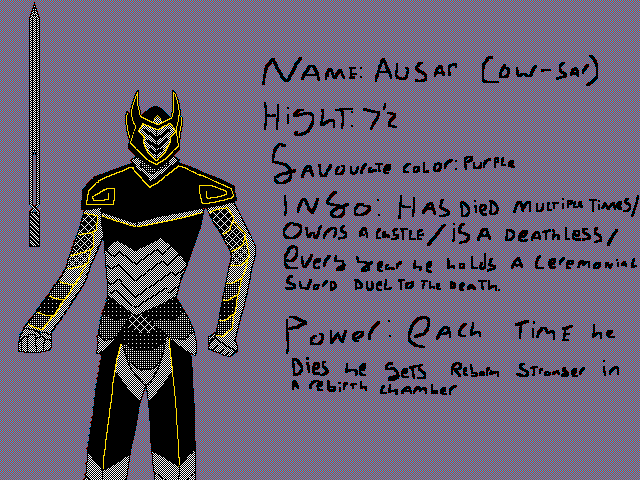 NAME: AUSAr (OW-SAr)
HighT: 7'2
FAVOUrate color: Purple
INFO: HAS DIED MULTIPLE TIMES/
OWNS A CASTLE/ IS A DEATHLESS/
Every year he holds A Ceremonial
SWORD DUEL TO THE DEATH.
Power: Each TIME he
Dies he GETS Reborn Stronger in
A rebirth chamber